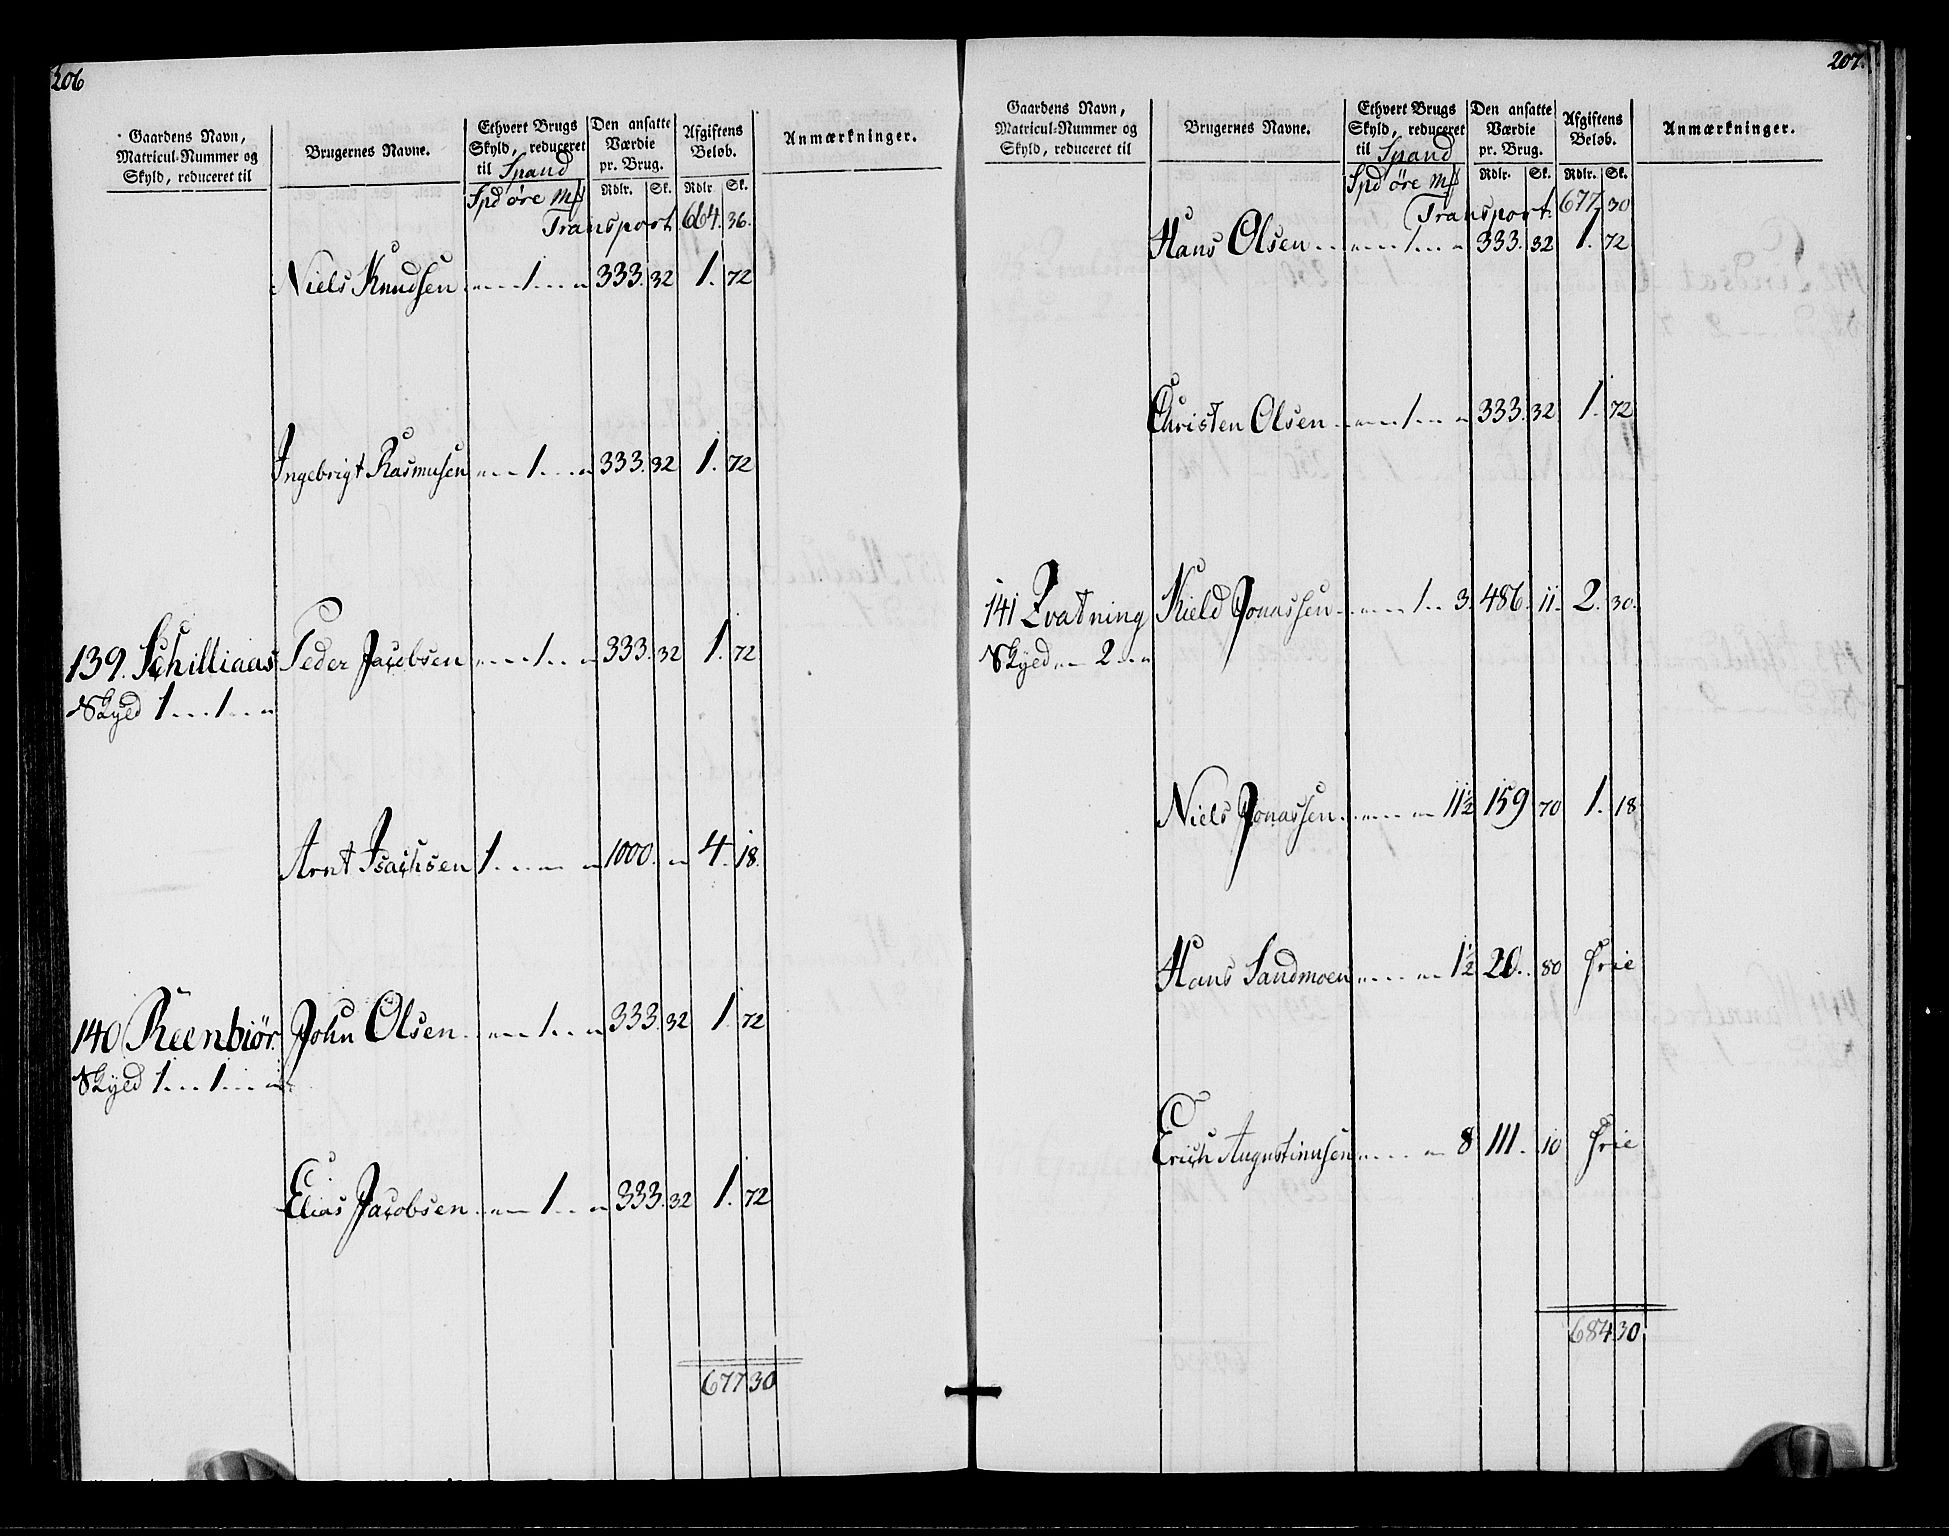 206
Gaardens Navn, Matricul-Nummer og Skyld, reduceret til
Brugernes Navne.
Ethvert Brugs Skyld, reduceret til Spand
Den ansatte Værdie pr. Brug.
Afgiftens Beløb.
Anmærkninger.
Spd øre Mk Rdlr. Sk. Rdlr. Sk.
Transport 664. 36.
Niels Knudsen " 1 " 333. 32 1. 72
Ingebrigt Rasmusen " 1 " 333. 32 1. 72
139. Schilliaas Peder Jacobsen " 1 " 333. 32 1. 72
Skyld 1 1 "
Arnt Isachsen 1 " " 1000. " 4. 18.
140 Reenbiør John Olsen " 1 " 333. 32 1. 72
Skyld 1 1 "
Elias Jacobsen " 1 " 333. 32 1. 72
677 30
207.
Gaardens Navn, Matricul-Nummer og Skyld, reduceret til
Brugernes Navne.
Ethvert Brugs Skyld, reduceret til Spand
Den ansatte Værdie pr. Brug.
Afgiftens Beløb.
Anmærkninger.
Spd øre Mk Rdlr. Sk. Rdlr. Sk.
Transport. 677. 30
Hans Olsen " 1 " 333. 32 1. 72
Christen Olsen " 1 " 333. 32. 1. 72
141 Qvatning Kield Jonassen " 1 3. 486. 11. 2. 30.
Skyld " 2 "
Niels Jonassen " " 11½ 159 70 1. 18
Hans Sandmoen " " 1½ 20. 80 Frie
Erich Augustinusen " " 8 111. 10 Frie
684 30